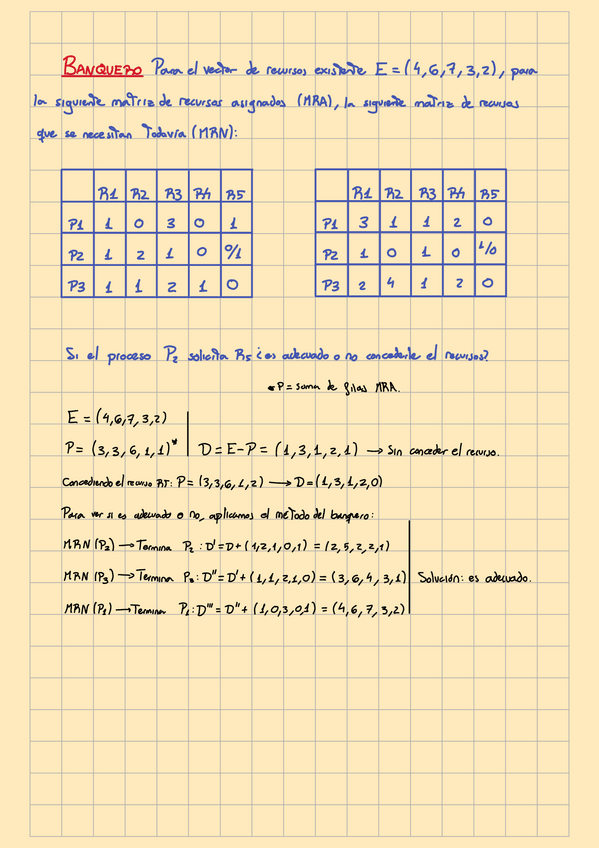 BANQUERO Para el vector de recursos existente E = (4,6,7,3,2), para
la siguiente matriz de recursos asignados (MRA), la siguiente matriz de recursos
que se necesitan Todavía (MRN):
R1 R2 R3 R4 R5
P1 1 0 3 0 1
P2 1 2 1 0 0/1
P3 1 1 2 1 0
R1 R2 R3 R4 R5
P1 3 1 1 2 0
P2 1 0 1 0 1/0
P3 2 4 1 2 0
Si el proceso P2 solicita R5 ¿es adecuado o no concederle el recursos?
*P = suma de filas MRA.
E = (4,6,7,3,2)
P = (3,3,6,1,1)* D = E-P = (1,3,1,2,1) → Sin conceder el recurso.
Concediendo el recurso R5: P = (3,3,6,1,2) → D = (1,3,1,2,0)
Para ver si es adecuado o no, aplicamos el método del banquero:
MRN (P2) → Termina P2 : D' = D + (1,2,1,0,1) = (2,5,2,2,1)
MRN (P3) → Termina P3 : D'' = D' + (1,1,2,1,0) = (3,6,4,3,1) Solución: es adecuado.
MRN (P1) → Termina P1 : D''' = D'' + (1,0,3,0,1) = (4,6,7,3,2)